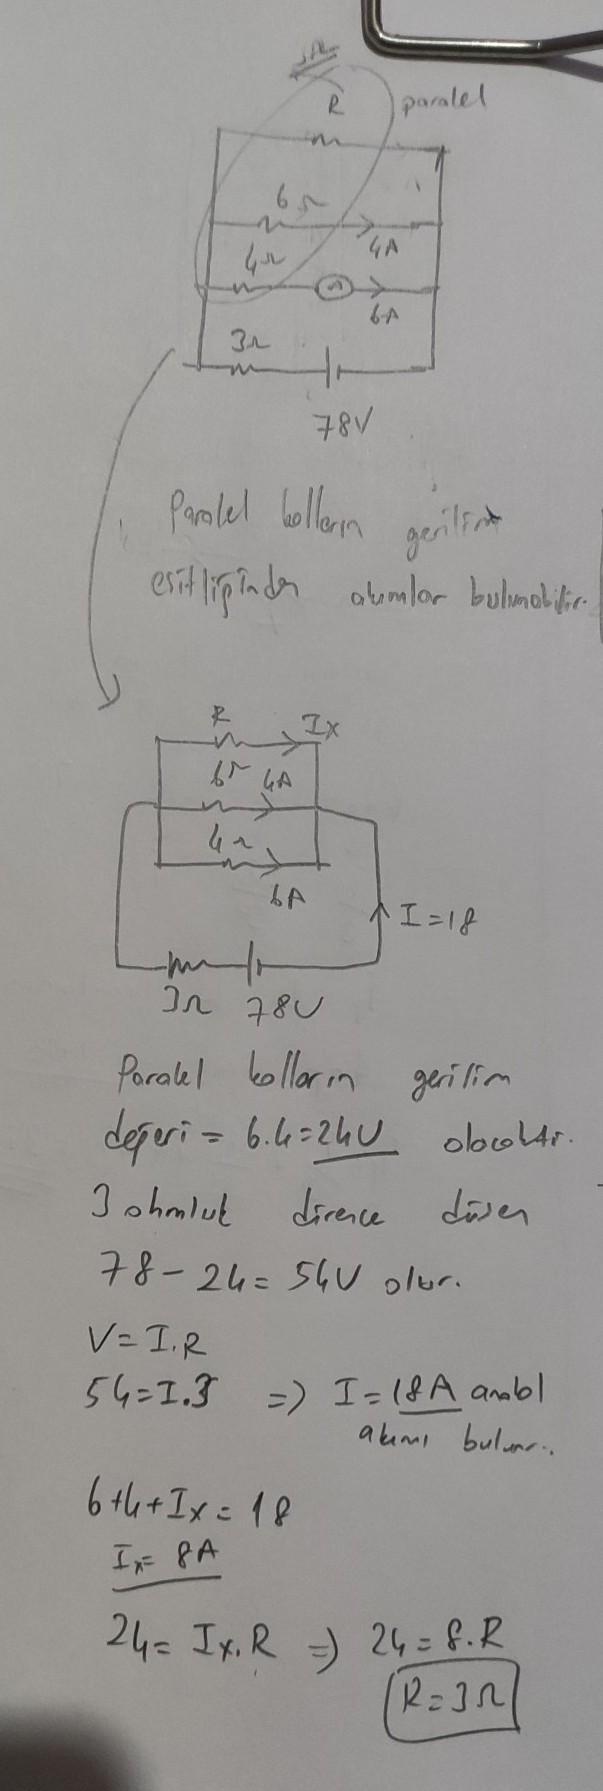 R
paralel
6Ω
4A
4Ω
6A
3Ω
78V
Paralel kolların gerilim
eşitliğinden akımlar bulunabilir.
R
Ix
6Ω
4A
4Ω
6A
I=18
3Ω
78V
Paralel kolların gerilim
değeri = 6.4=24V olacaktır.
3 ohmluk dirence düşen
78-24= 54V olur.
V=I.R
54=I.3 => I=18A anakol
akımı bulunur.
6+4+Ix= 18
Ix= 8A
24= Ix.R => 24=8.R
R=3Ω